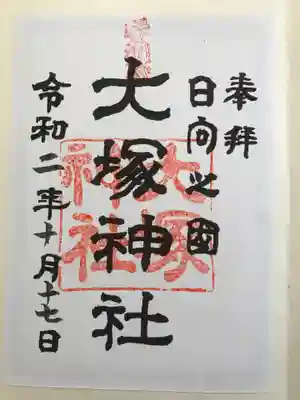 奉拜
日向之國
大塚神社
令和二年十月十七日
大塚
神社